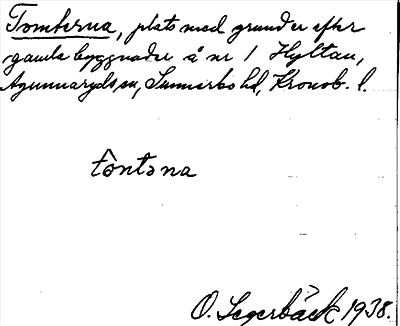 Tomterna, plats med grunder efter
gamla byggnader å nr 1 Hyltan,
Agunnaryds sn, Sunnerbo hd, Kronob. l.
tômtəna
O. Segerbäck 1938.